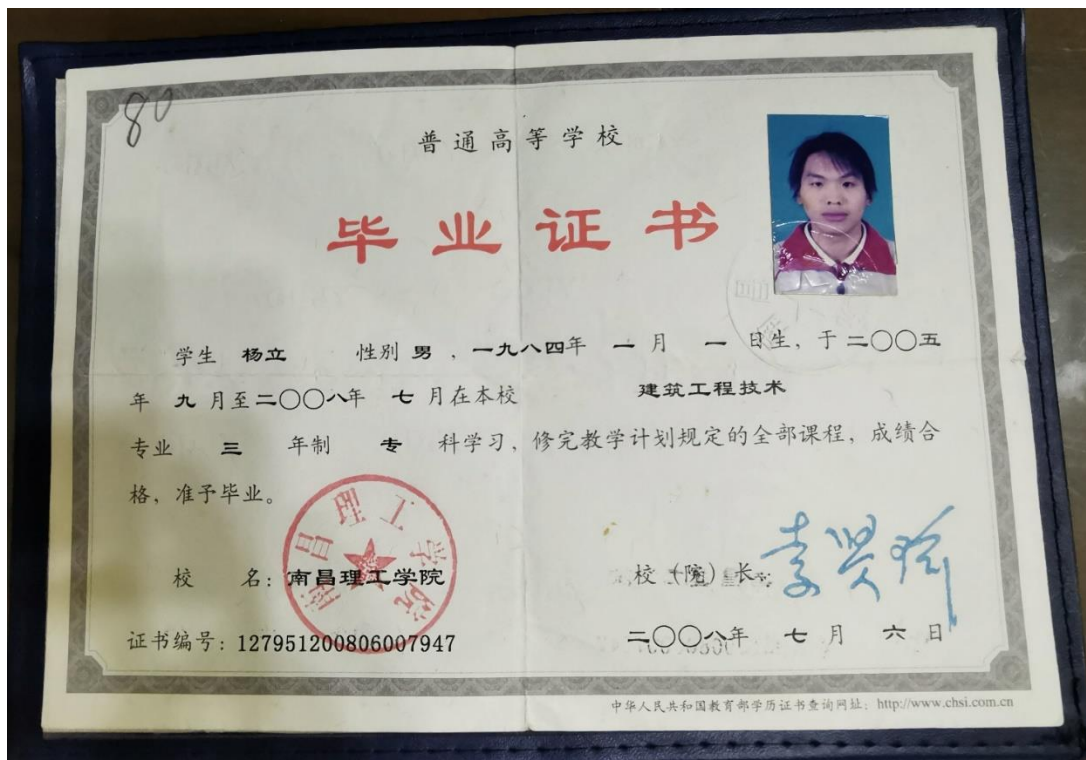 80
普通高等学校
毕业证书
学生 杨立 性别 男 ，一九八四年 一 月 一 日生，于二〇〇五
年 九 月至二〇〇八年 七 月在本校 建筑工程技术
专业 三 年制 专 科学习，修完教学计划规定的全部课程，成绩合
格，准予毕业。
南昌理工学院
校 名：南昌理工学院
校（院）长：
证书编号：127951200806007947
二〇〇八年 七 月 六 日
中华人民共和国教育部学历证书查询网址：http://www.chsi.com.cn